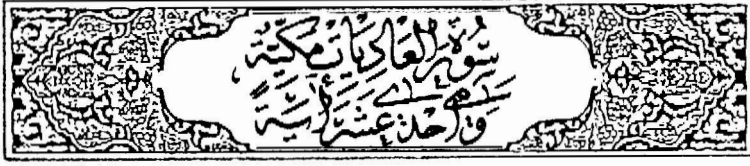 سُورَةُ العَادِيَاتِ مَكِّيَّةٌ
وَهِيَ إحْدَى عَشَرَ آيَةً